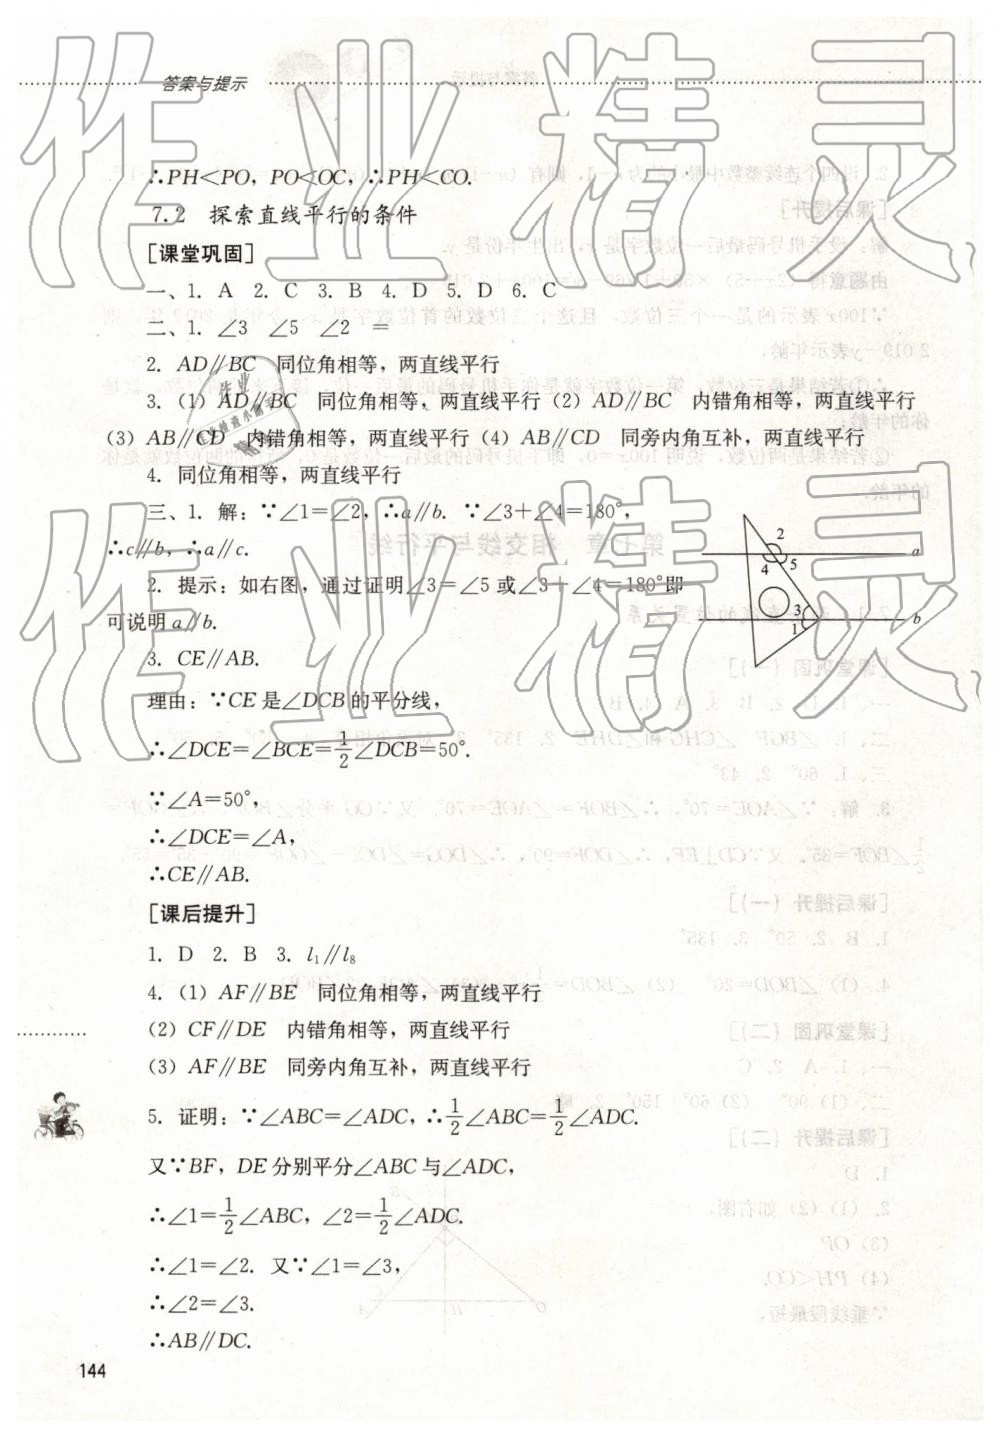 答案与提示
∴PH<PO，PO<OC，∴PH<CO.
7.2 探索直线平行的条件
[课堂巩固]
一、1. A 2. C 3. B 4. D 5. D 6. C
二、1. ∠3 ∠5 ∠2 =
2. AD∥BC 同位角相等，两直线平行
3.（1）AD∥BC 同位角相等，两直线平行（2）AD∥BC 内错角相等，两直线平行
（3）AB∥CD 内错角相等，两直线平行（4）AB∥CD 同旁内角互补，两直线平行
4. 同位角相等，两直线平行
三、1. 解：∵∠1=∠2，∴a∥b. ∵∠3+∠4=180°，
∴c∥b，∴a∥c.
2. 提示：如右图，通过证明∠3=∠5或∠3+∠4=180°即
可说明a∥b.
2
a
4 5
3
b
1
3. CE∥AB.
理由：∵CE是∠DCB的平分线，
∴∠DCE=∠BCE=1/2∠DCB=50°.
∵∠A=50°，
∴∠DCE=∠A，
∴CE∥AB.
[课后提升]
1. D 2. B 3. l₁∥l₈
4.（1）AF∥BE 同位角相等，两直线平行
（2）CF∥DE 内错角相等，两直线平行
（3）AF∥BE 同旁内角互补，两直线平行
5. 证明：∵∠ABC=∠ADC，∴1/2∠ABC=1/2∠ADC.
又∵BF，DE分别平分∠ABC与∠ADC，
∴∠1=1/2∠ABC，∠2=1/2∠ADC.
∴∠1=∠2. 又∵∠1=∠3，
∴∠2=∠3.
∴AB∥DC.
144
作业精灵
作业精灵